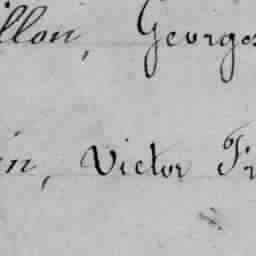 llon, Georges
n, Victor Fr